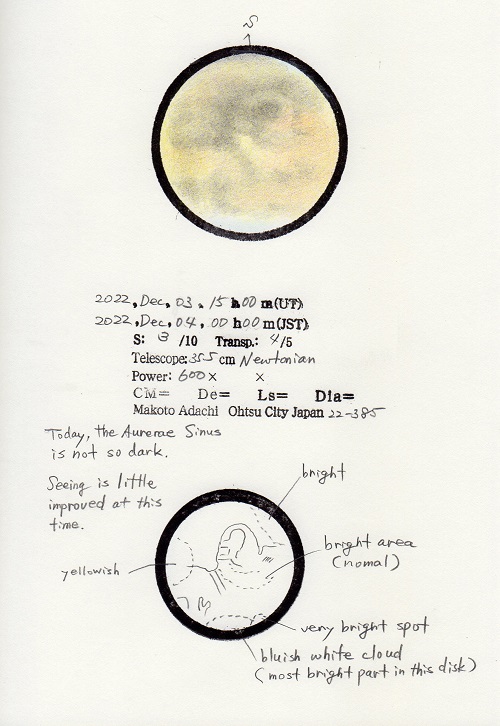 S
2022, Dec, 03, 15 h 00 m (UT)
2022, Dec, 04, 00 h 00 m (JST)
S: 3 /10 Transp.: 4/5
Telescope: 35.5 cm Newtonian
Power: 600 × ×
CM= De= Ls= Dia=
Makoto Adachi Ohtsu City Japan 22-385
Today, the Aurerae Sinus
is not so dark.
Seeing is little
improved at this
time.
bright
bright area
(nomal)
yellowish
very bright spot
bluish white cloud
(most bright part in this disk)